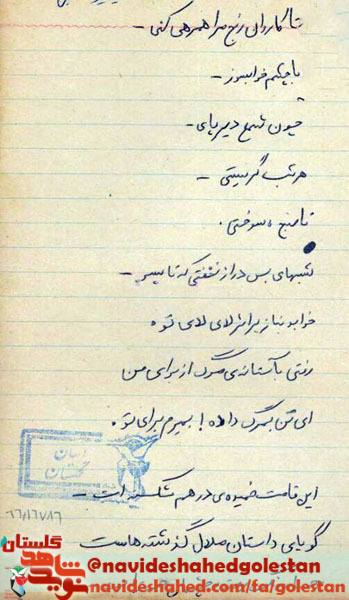 تا کاروان رنج مرا همرهی کنی -
با چشم خوابسوز -
چون شمع دیرپای -
هر شب گریستی -
تا صبح، سوختی.
شبهای بس دراز نخفتی که تا پسر -
خوابد بناز بر اثر لای لای تو،
رفتی به آستانه‌ی مرگ از برای من
ای تن بمرگ داده! بمیرم برای تو.
این قامت خمیده‌ی درهم شکسته‌ات -
گویای داستان ملال گذشته‌هاست
استان
گلستان
نوید شاهد گلستان
@navideshahedgolestan
navideshahed.com/fa/golestan